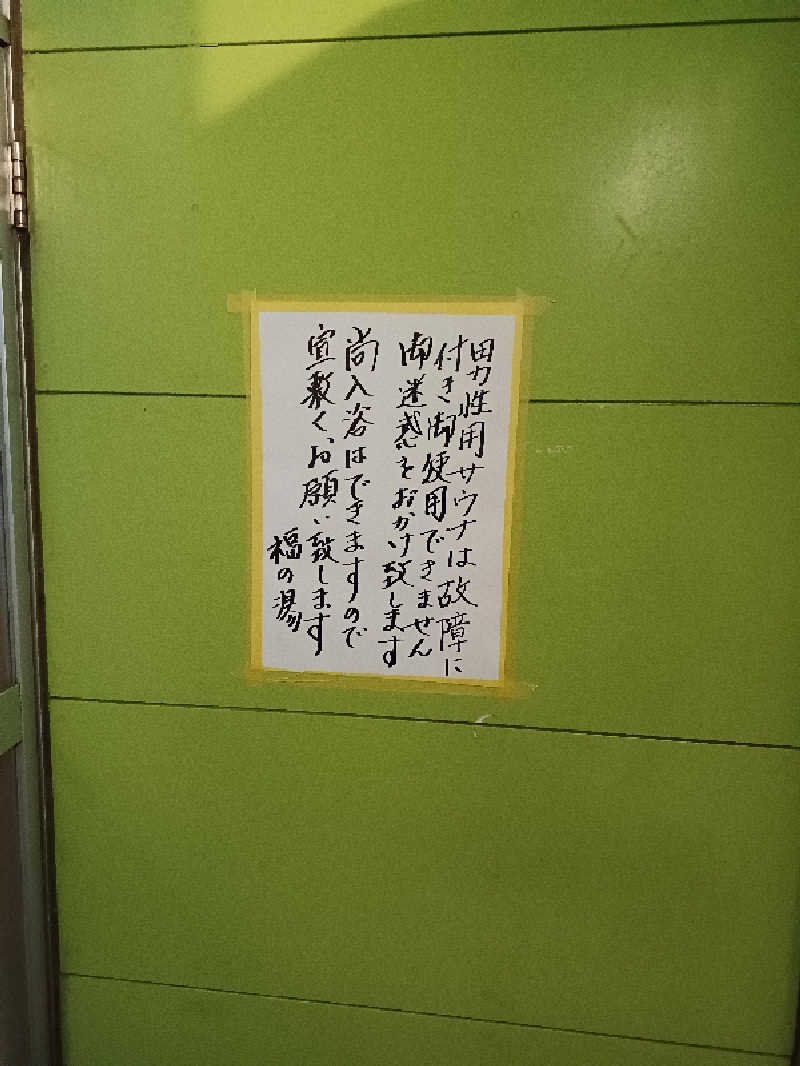 男性用サウナは故障に
付き御使用できません
御迷惑をおかけ致します
尚入浴はできますので
宜敷く、お願い致します
福の湯